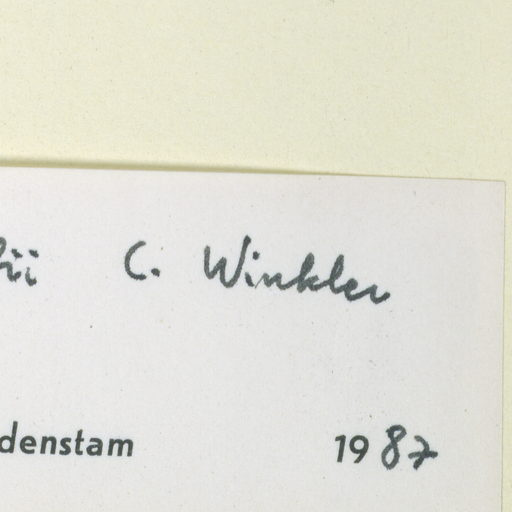 ii C. Winkler
denstam 1987